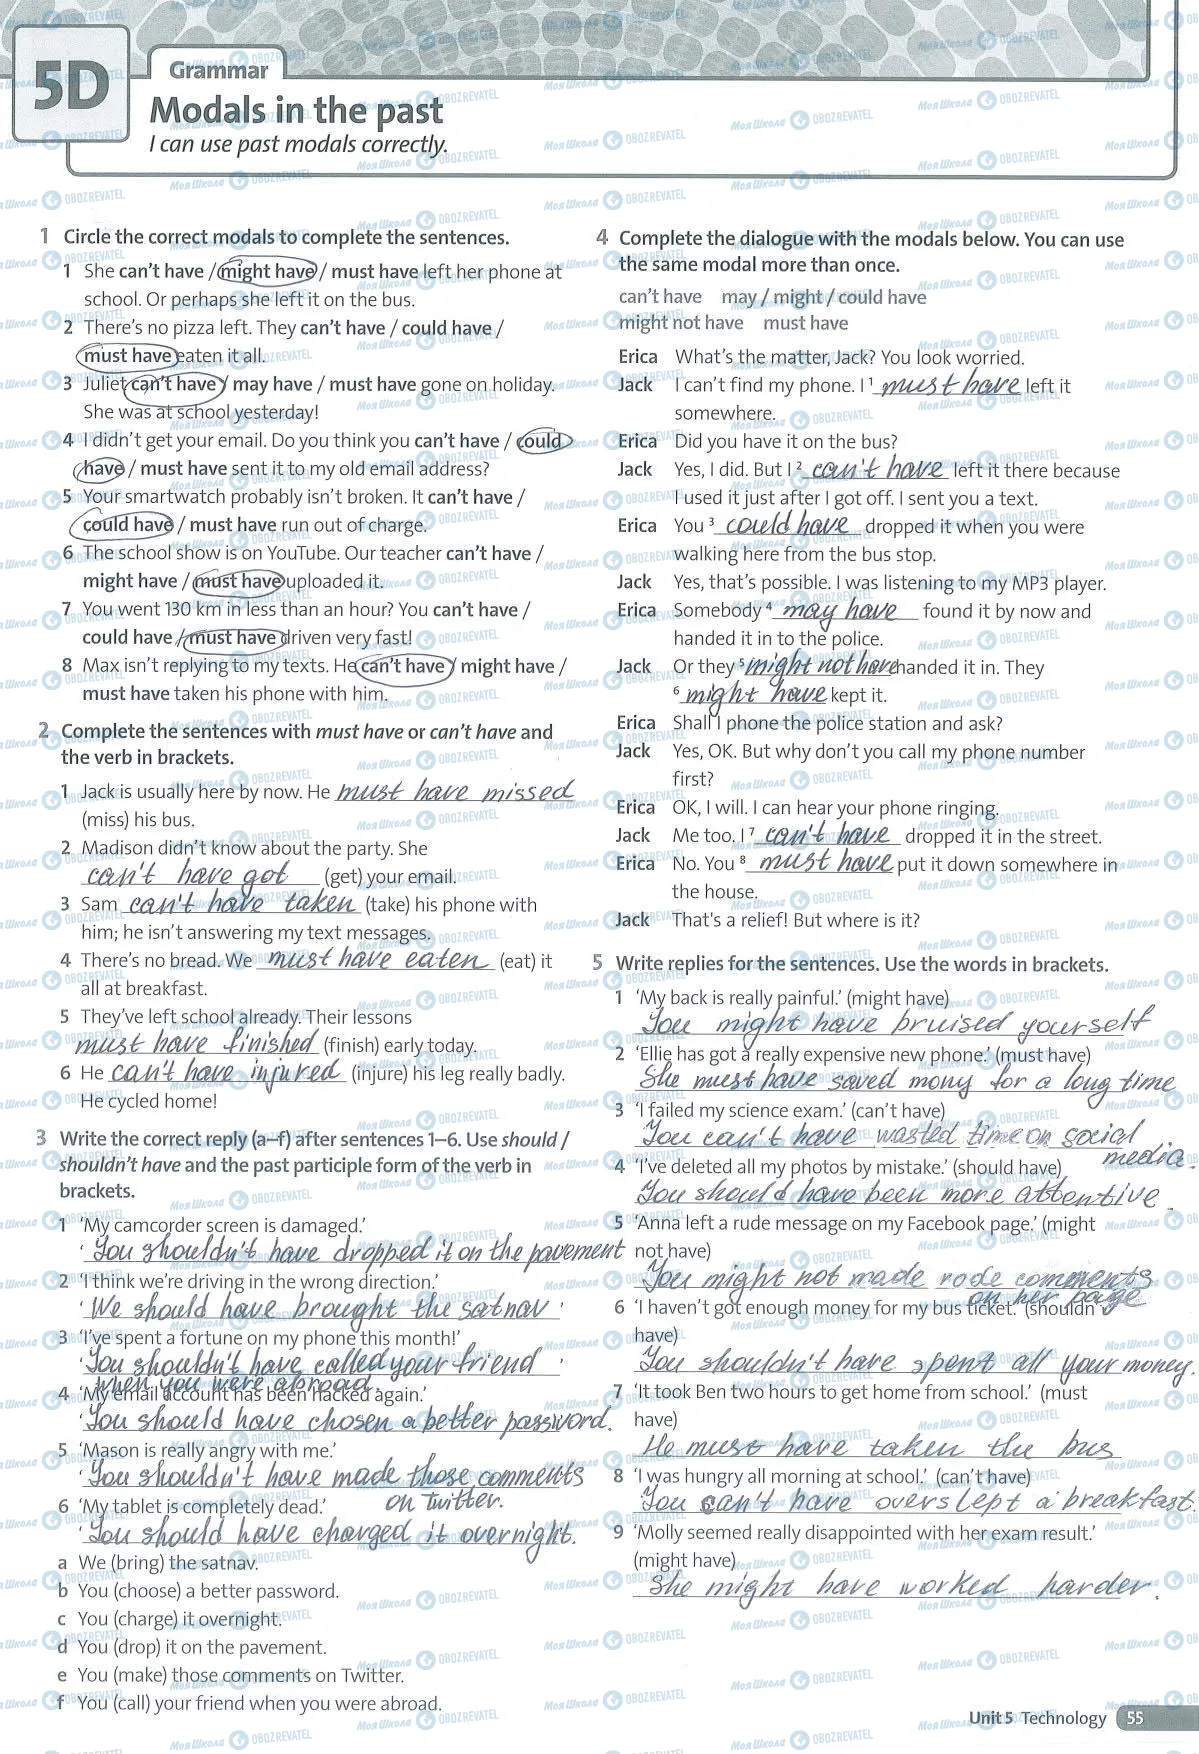 5D
Grammar
Modals in the past
I can use past modals correctly.
1 Circle the correct modals to complete the sentences.
1 She can't have / might have / must have left her phone at
school. Or perhaps she left it on the bus.
2 There's no pizza left. They can't have / could have /
must have eaten it all.
3 Juliet can't have / may have / must have gone on holiday.
She was at school yesterday!
4 I didn't get your email. Do you think you can't have / could
have / must have sent it to my old email address?
5 Your smartwatch probably isn't broken. It can't have /
could have / must have run out of charge.
6 The school show is on YouTube. Our teacher can't have /
might have / must have uploaded it.
7 You went 130 km in less than an hour? You can't have /
could have / must have driven very fast!
8 Max isn't replying to my texts. He can't have / might have /
must have taken his phone with him.
2 Complete the sentences with must have or can't have and
the verb in brackets.
1 Jack is usually here by now. He must have missed
(miss) his bus.
2 Madison didn't know about the party. She
can't have got (get) your email.
3 Sam can't have taken (take) his phone with
him; he isn't answering my text messages.
4 There's no bread. We must have eaten (eat) it
all at breakfast.
5 They've left school already. Their lessons
must have finished (finish) early today.
6 He can't have injured (injure) his leg really badly.
He cycled home!
3 Write the correct reply (a–f) after sentences 1–6. Use should /
shouldn't have and the past participle form of the verb in
brackets.
1 'My camcorder screen is damaged.'
'You shouldn't have dropped it on the pavement
2 'I think we're driving in the wrong direction.'
'We should have brought the satnav'
3 'I've spent a fortune on my phone this month!'
'You shouldn't have called your friend'
when you were abroad.
4 'My email account has been hacked again.'
'You should have chosen a better password.
5 'Mason is really angry with me.'
'You shouldn't have made those comments
on Twitter.
6 'My tablet is completely dead.'
'You should have charged it overnight.
a We (bring) the satnav.
b You (choose) a better password.
c You (charge) it overnight.
d You (drop) it on the pavement.
e You (make) those comments on Twitter.
f You (call) your friend when you were abroad.
4 Complete the dialogue with the modals below. You can use
the same modal more than once.
can't have may / might / could have
might not have must have
Erica What's the matter, Jack? You look worried.
Jack I can't find my phone. I 1 must have left it
somewhere.
Erica Did you have it on the bus?
Jack Yes, I did. But I 2 can't have left it there because
I used it just after I got off. I sent you a text.
Erica You 3 could have dropped it when you were
walking here from the bus stop.
Jack Yes, that's possible. I was listening to my MP3 player.
Erica Somebody 4 may have found it by now and
handed it in to the police.
Jack Or they 5 might not have handed it in. They
6 might have kept it.
Erica Shall I phone the police station and ask?
Jack Yes, OK. But why don't you call my phone number
first?
Erica OK, I will. I can hear your phone ringing.
Jack Me too. I 7 can't have dropped it in the street.
Erica No. You 8 must have put it down somewhere in
the house.
Jack That's a relief! But where is it?
5 Write replies for the sentences. Use the words in brackets.
1 'My back is really painful.' (might have)
You might have bruised yourself
2 'Ellie has got a really expensive new phone.' (must have)
She must have saved mony for a long time
3 'I failed my science exam.' (can't have)
You can't have wasted time on social
media.
4 'I've deleted all my photos by mistake.' (should have)
You should have been more attentive.
5 'Anna left a rude message on my Facebook page.' (might
not have)
You might not made rode comments
on her page
6 'I haven't got enough money for my bus ticket.' (shouldn't
have)
You shouldn't have spent all your money.
7 'It took Ben two hours to get home from school.' (must
have)
He must have taken the bus
8 'I was hungry all morning at school.' (can't have)
You can't have overslept a breakfast.
9 'Molly seemed really disappointed with her exam result.'
(might have)
She might have worked harder.
Unit 5 Technology 55
Моя Школа OBOZREVATEL